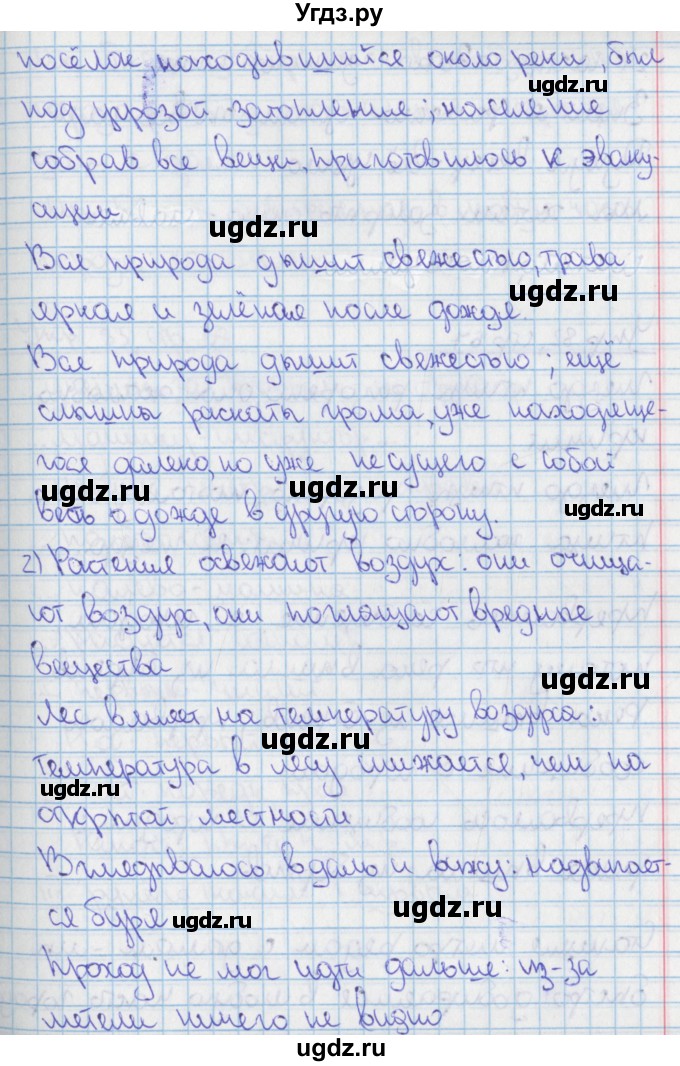 Угдз.ру
посёлок, находившийся около реки, был
ugdz.ru
под угрозой затопления; население
собрав все вещи, приготовилось к эваку-
ugdz.ru
ации
ugdz.ru
Вся природа дышит свежестью, трава
ugdz.ru
яркая и зелёная после дождя.
Вся природа дышит свежестью; ещё
слышны раскаты грома, уже находяще-
гося далеко, но уже несущего с собой
ugdz.ru
ugdz.ru
ugdz.ru
весть о дожде в другую сторону.
2) Растения освежают воздух: они очища-
ют воздух, они поглощают вредные
вещества
ugdz.ru
Лес влияет на температуру воздуха:
ugdz.ru
Температура в лесу снижается, чем на
ugdz.ru
открытой местности
Вглядываюсь вдаль и вижу: надвигает-
ся буря
ugdz.ru
ugdz.ru
Проход не мог идти дальше: из-за
метели ничего не видно
ugdz.ru